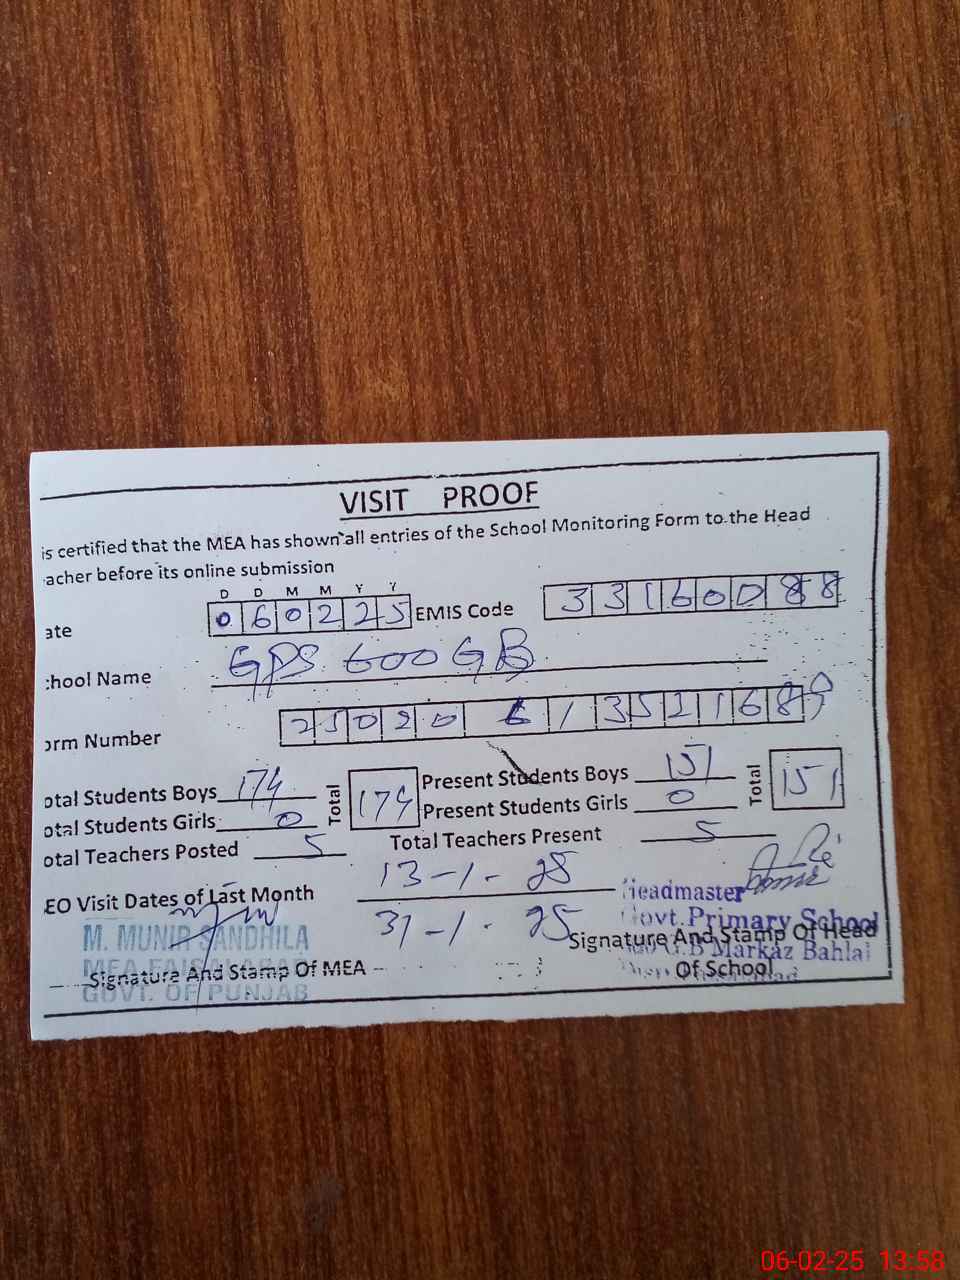 VISIT PROOF
is certified that the MEA has shown all entries of the School Monitoring Form to the Head
acher before its online submission
D D M M Y Y
ate 0 6 0 2 2 5 EMIS Code 3 3 1 6 0 0 8 8
:hool Name GPS 600 GB
orm Number
otal Students Boys 174 Total 174 Present Students Boys 151 Total 151
otal Students Girls 0 Present Students Girls 0
otal Teachers Posted 5 Total Teachers Present 5
EO Visit Dates of Last Month 13-1-25
31-1-25
Headmaster
Govt. Primary School
G.B Markaz Bahlai
Signature And Stamp Of Head
Of School
M. MUNIR SANDHILA
MEA FAISALABAD
GOVT. OF PUNJAB
Signature And Stamp Of MEA
06-02-25 13:58